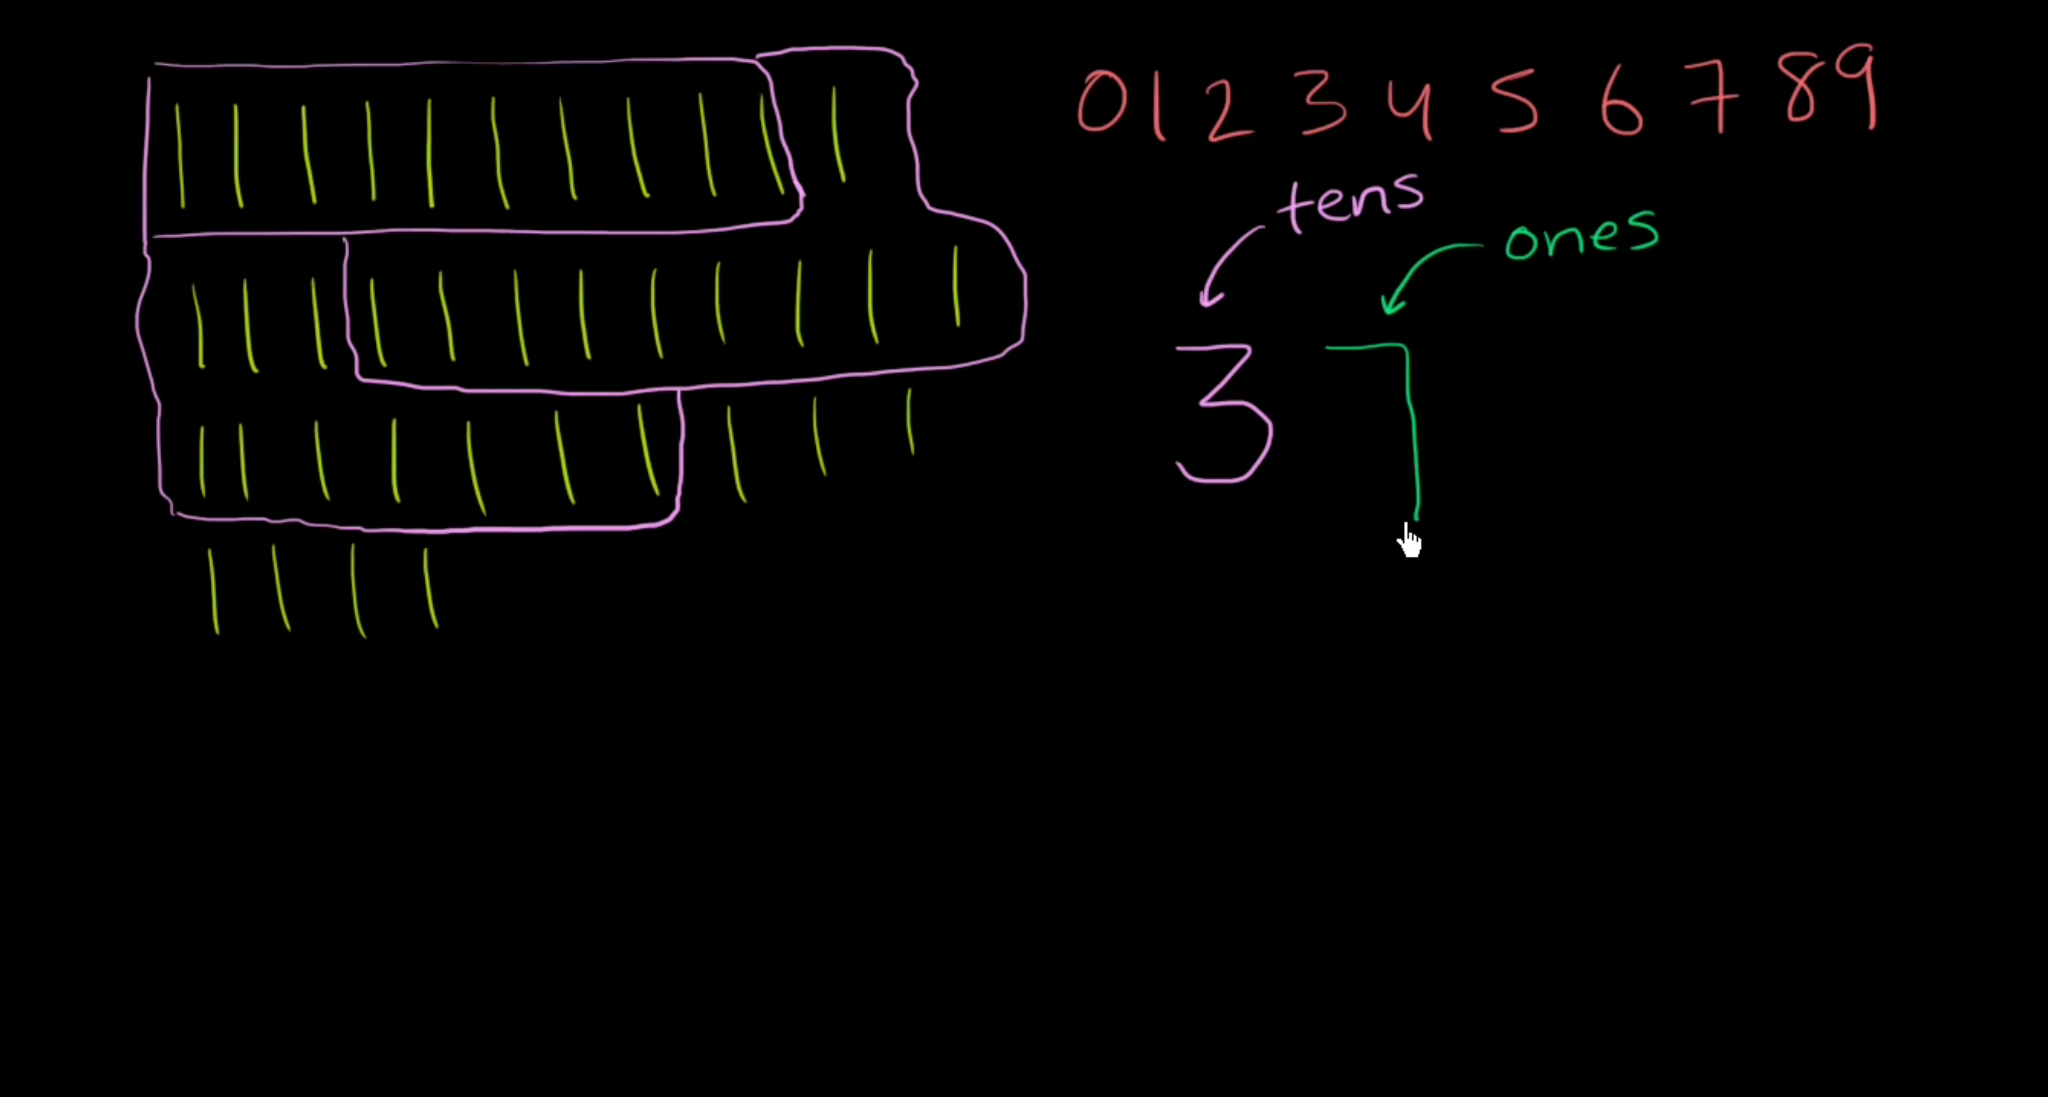 0 1 2 3 4 5 6 7 8 9
tens
ones
37